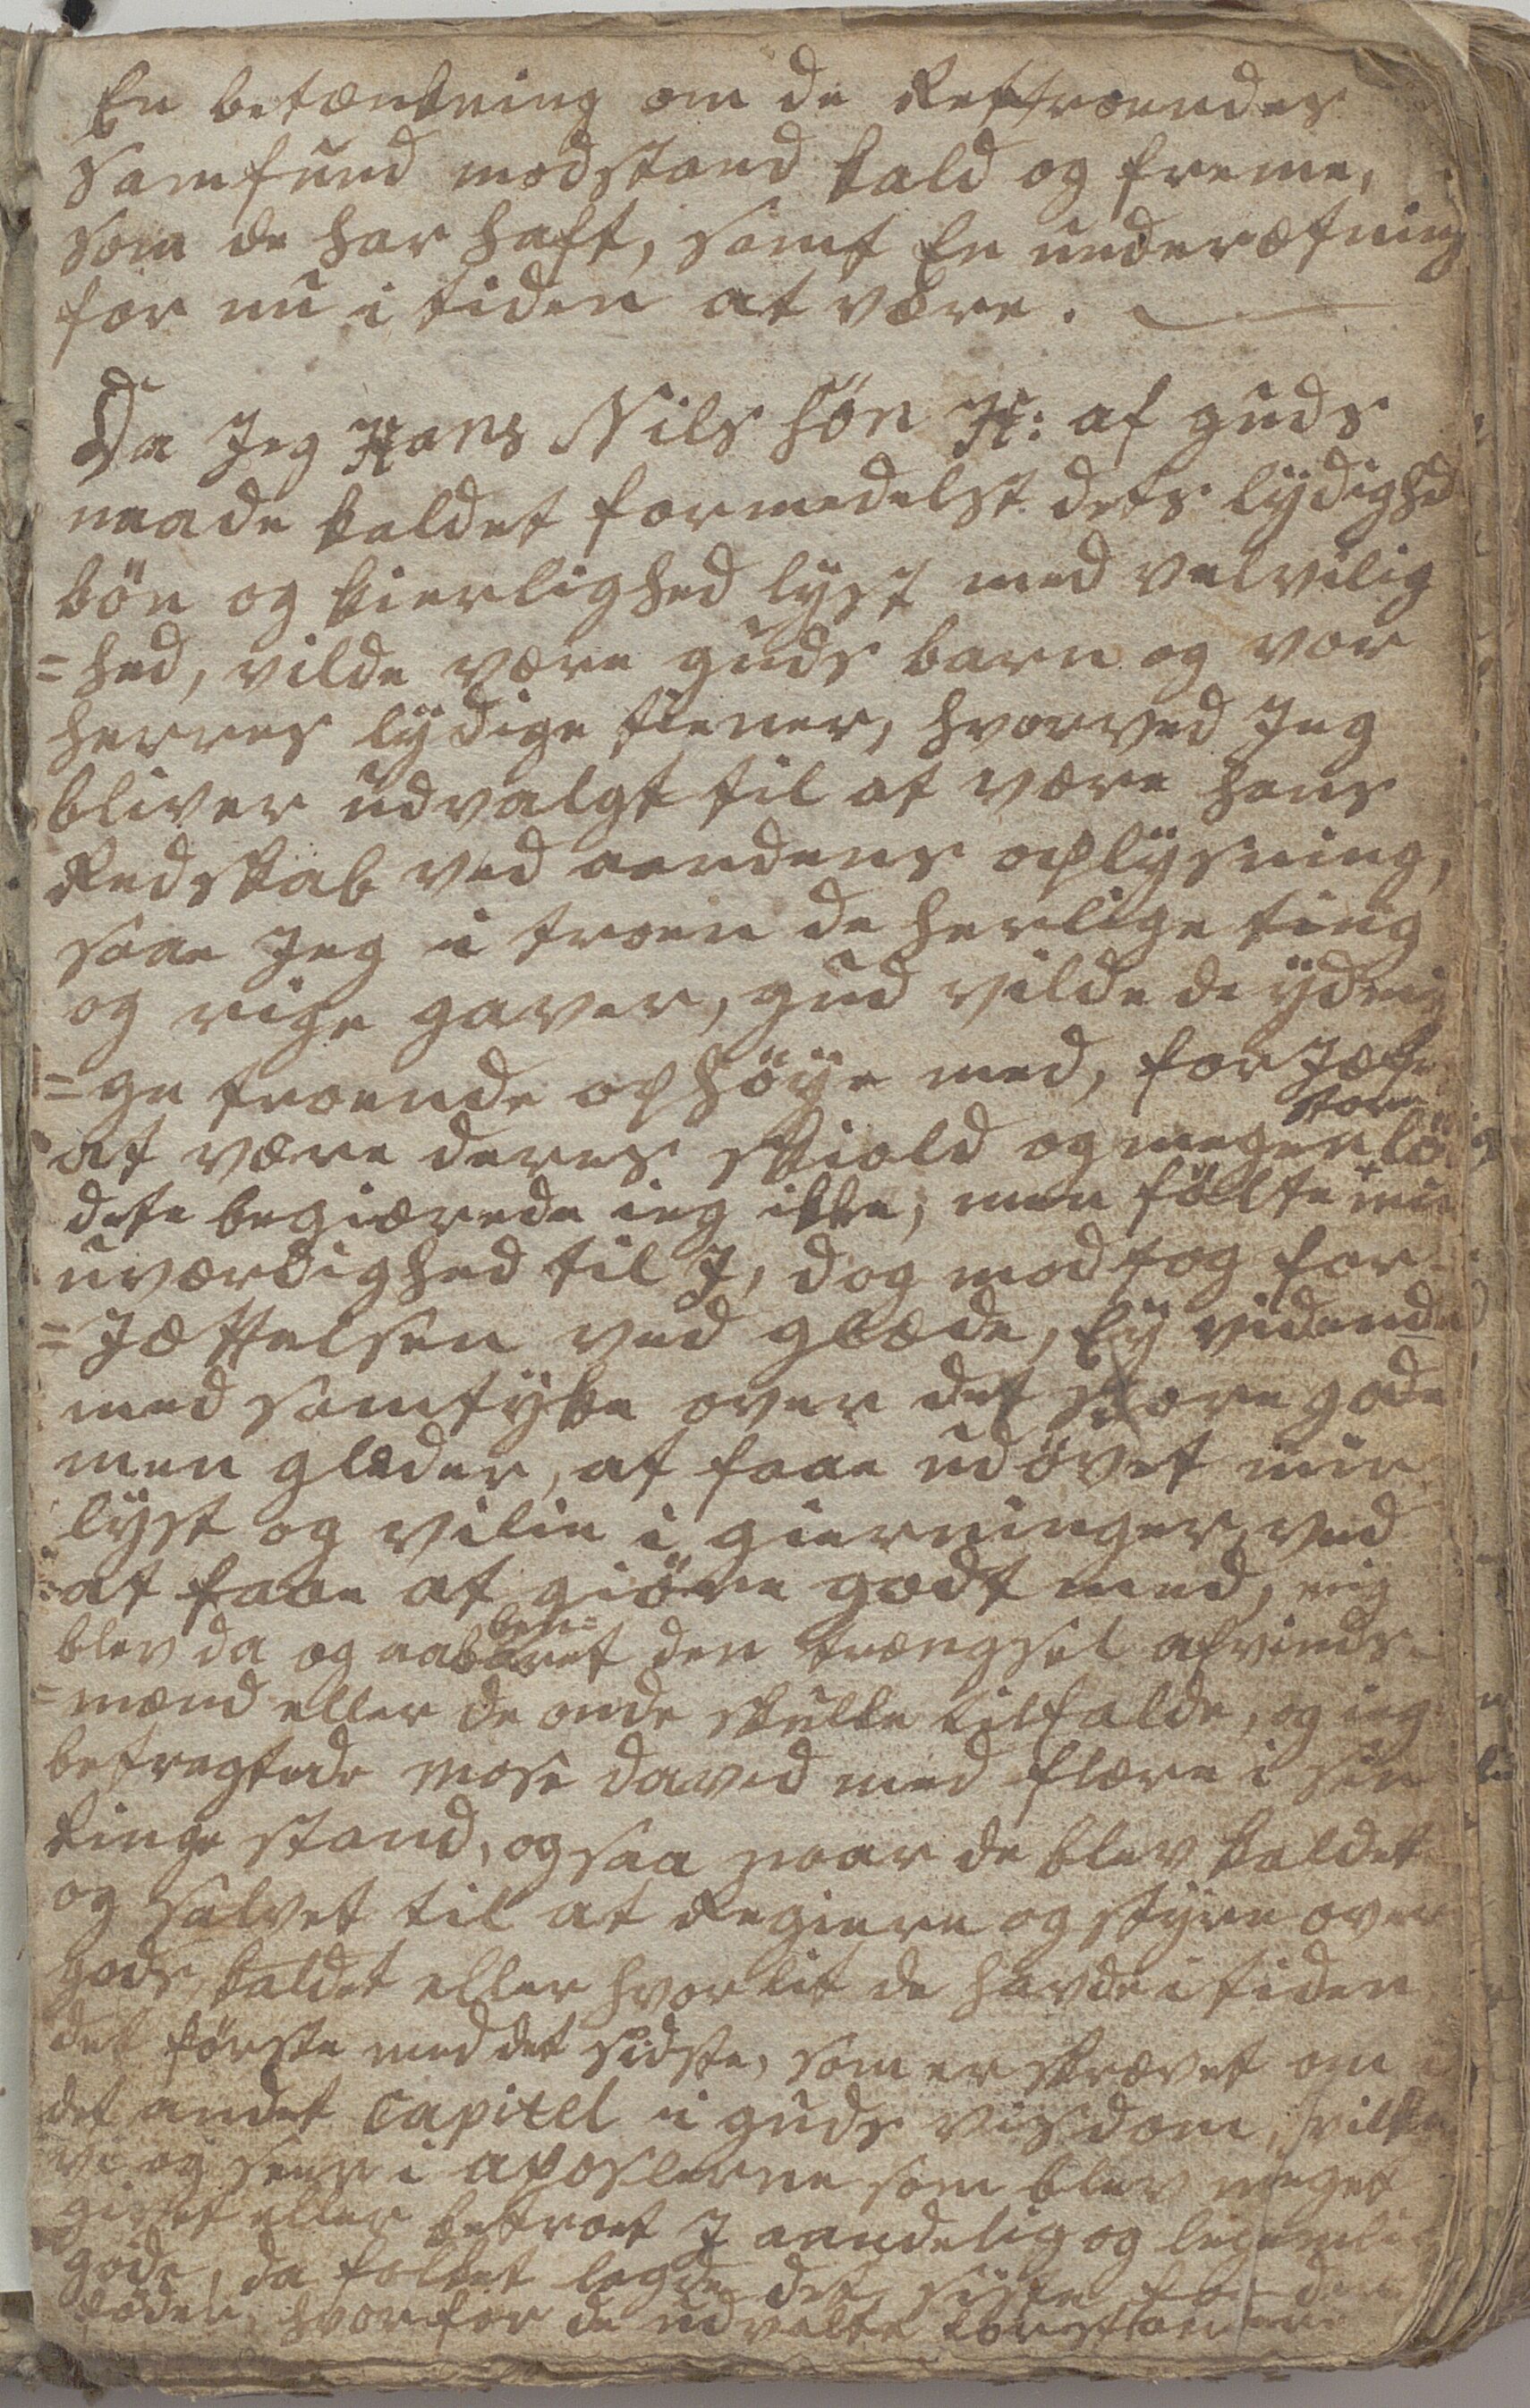 En betænkning om de Rettroendes
samfund modstand kald og freme,
som de har haft, samt En underætning
for nu i tiden at være.
Da Jeg Hans Nils søn H: af guds
naade kaldet formedelst dets lÿdighed
bön og kierlighed lÿst med velvilig
=hed, vilde være guds barn og vor
herres lÿdige tiener, hvorved Jeg
bliver udvalgt til at være hans
Redskab ved aandens oplÿsning,
saae Jeg i troen de herlige ting
og rige gaver, gud vilde de ÿdmÿ
=ge troende ophöÿe med, for Jætte
store
at være deres skiold og megen lö
dete begiærede ieg ikke, men fölte + min
uværdighed til J, dog modtog for=
=Jættelsen ved glæde, Eÿ vidende
med samtÿke over det store gode
men glæder, at faae udövet min
lÿst og vilie i gierninger, ved
at faae at giöre godt med, mig
ben=
blev da og aabaret den trængsel afvinds=
=mænd eller de onde skulle tilfalde, og ieg
betragtede Mose David med flære i sin
ringe stand, og saa naar de blev kaldet
og salvet til at Regiere og stÿre over
gods kaldet eller hvor lit de havde i tiden
det förste med det sidste, som er skrævet om i
det andet Capitel i guds visdom, hvilke
vi og seer i aposlerne som blev meget
givet eller betroet J aandelig og legemlig
gode, da folket lagde det siste for deres
föder, hvorfor de udvalte